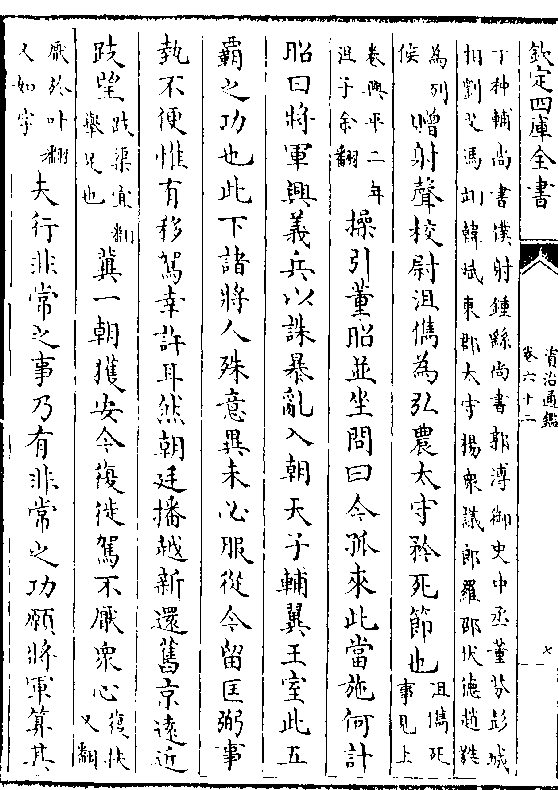 欽定四庫全書
資治通鑑
卷六十二
七
丁种輔尚書僕射鍾繇尚書郭溥御史中丞董芬彭城
相劉艾馮翊韓斌東郡太守楊衆議郎羅邵伏德趙蕤
為列侯贈射聲校尉沮儁為弘農太守矜死節也沮儁死事見上
卷興平二年沮子余翻操引董昭並坐問曰今孤來此當施何計
昭曰將軍興義兵以誅暴亂入朝天子輔翼王室此五
霸之功也此下諸將人殊意異未必服從今留匡弼事
執不便惟有移駕幸許耳然朝廷播越新還舊京遠近
跂望跂渠宜翻舉足也冀一朝獲安今復徙駕不厭衆心復扶又翻
厭於叶翻又如字夫行非常之事乃有非常之功願將軍算其